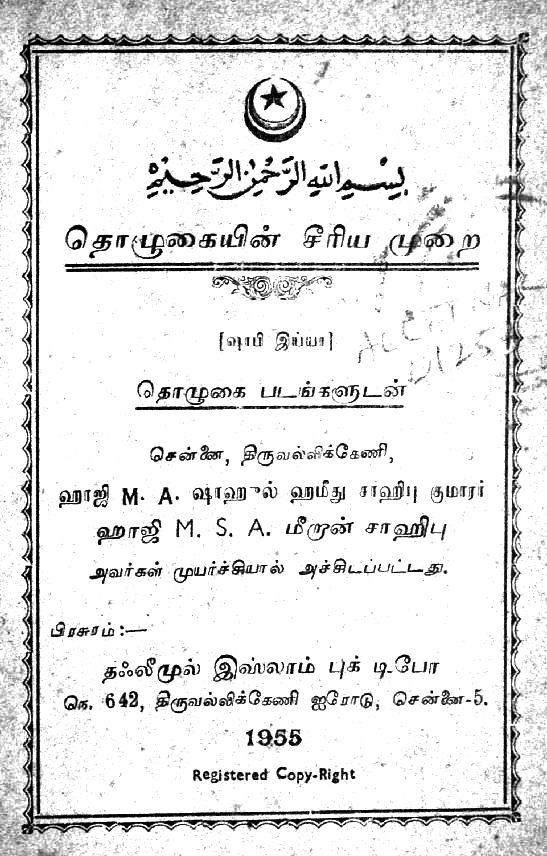 بِسْمِ اللهِ الرَّحْمٰنِ الرَّحِيْمِ
தொழுகையின் சீரிய முறை
[ஷாபி இய்யா]
தொழுகை படங்களுடன்
சென்னை, திருவல்லிக்கேணி,
ஹாஜி M. A. ஷாஹுல் ஹமீது சாஹிபு குமாரர்
ஹாஜி M. S. A. மீறான் சாஹிபு
அவர்கள் முயர்ச்சியால் அச்சிடப்பட்டது.
பிரசுரம்:—
தஃலீமுல் இஸ்லாம் புக் டிபோ
நெ. 642, திருவல்லிக்கேணி ஐரோடு, சென்னை-5.
1955
Registered Copy-Right